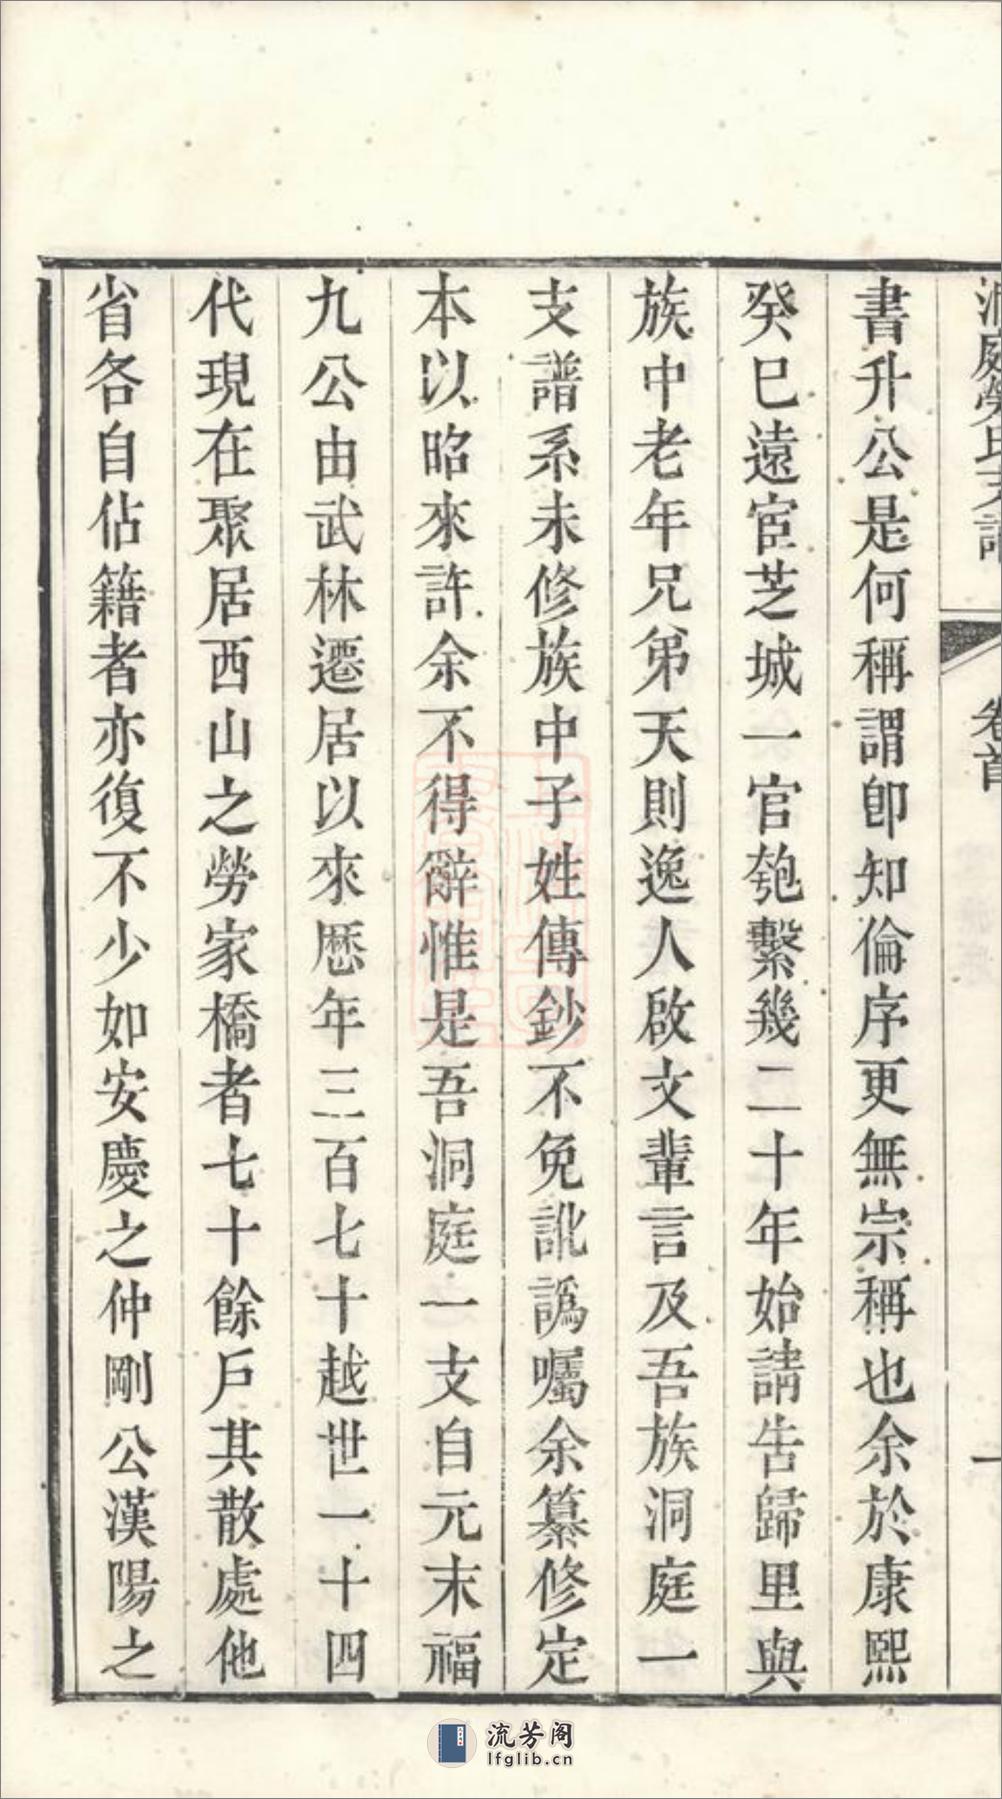 洞庭勞氏支譜 卷首 一
書升公是何稱謂卽知倫序更無宗稱也余於康熙
癸巳遠宦芝城一官匏繫幾二十年始請告歸里與
族中老年兄弟天則逸人啟文輩言及吾族洞庭一
支譜系未修族中子姓傳鈔不免訛譌囑余纂修定
本以昭來許余不得辭惟是吾洞庭一支自元末福
九公由武林遷居以來歷年三百七十越世一十四
代現在聚居西山之勞家橋者七十餘戶其散處他
省各自佔籍者亦復不少如安慶之仲剛公漢陽之
流芳阁
lfglib.cn